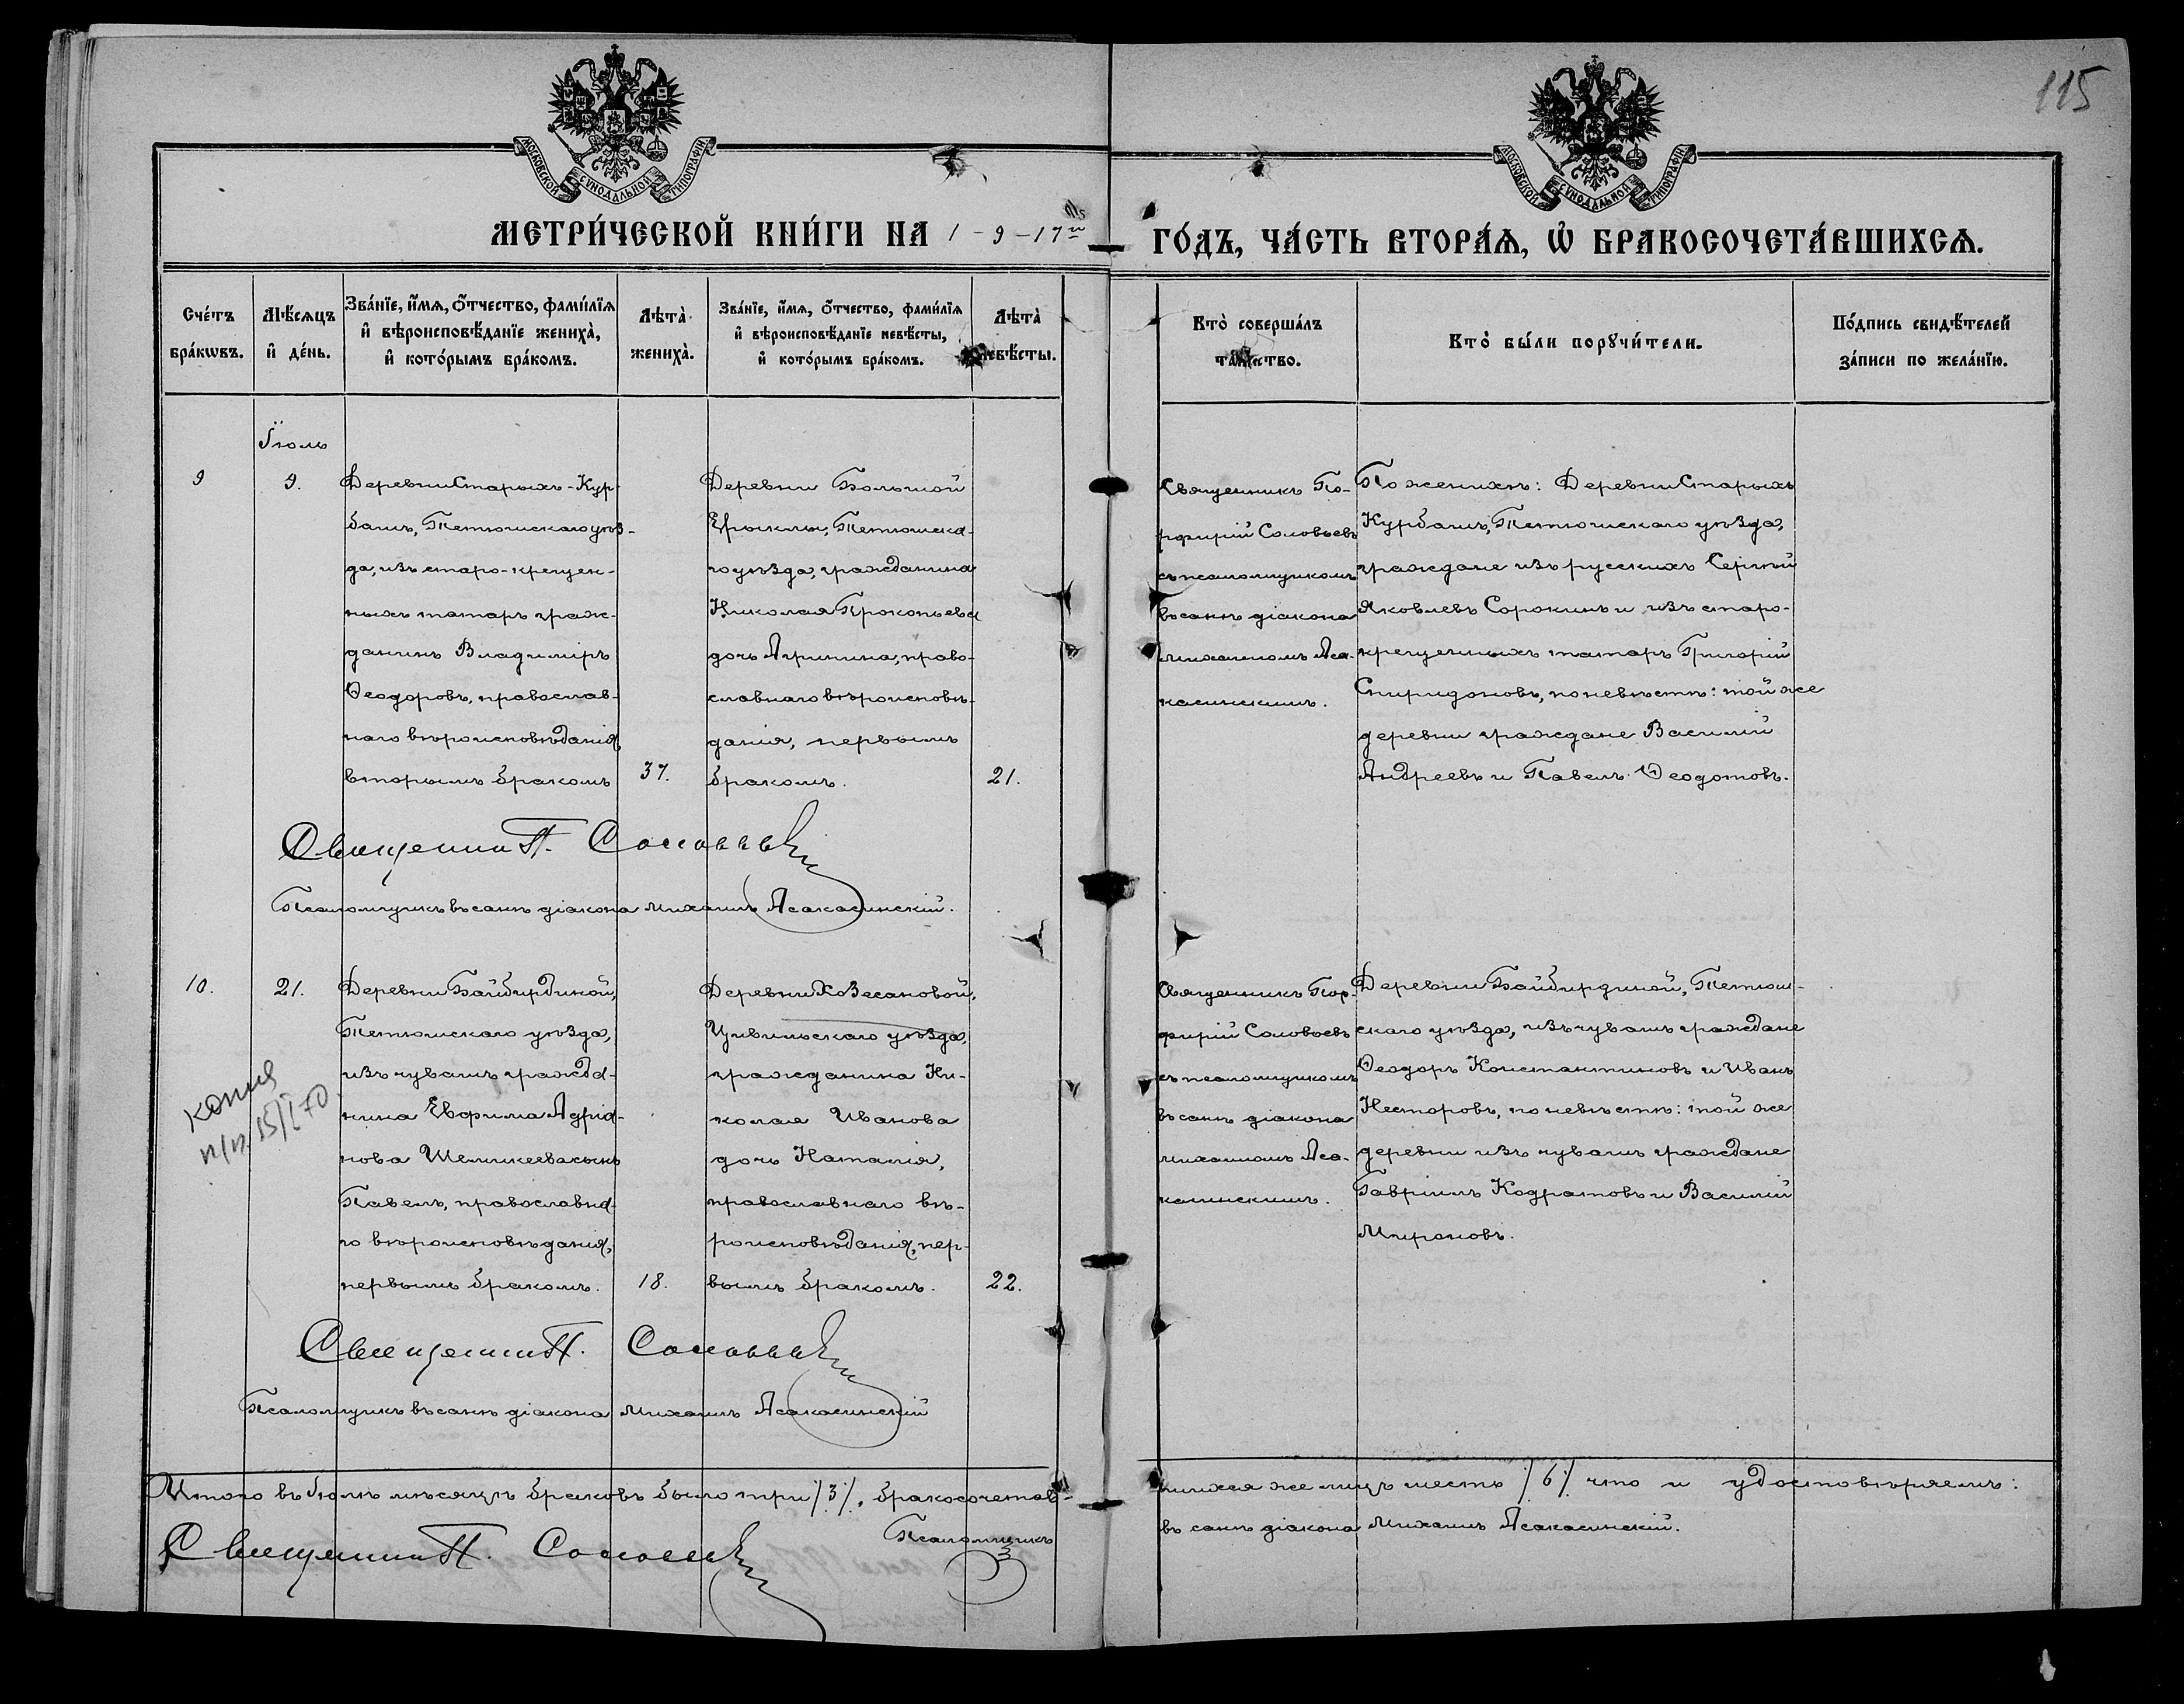 115
МОСКОВСКОЙ СѴНОДАЛЬНОЙ ТИПОГРАФІИ
МОСКОВСКОЙ СѴНОДАЛЬНОЙ ТИПОГРАФІИ
МЕТРИ́ЧЕСКОЙ КНИ́ГИ НА 1-9-17 ГО́ДЪ, ЧА́СТЬ ВТОРА́Я, Ѡ БРАКОСОЧЕТА́ВШИХСЯ.
Сче́тъ
бра́кѡвъ.
Мѣ́сяцъ
и҆ де́нь.
Зва́нїе, и҆́мя, ѻ҆́тчество, фами́лїя
и҆ вѣроисповѣ́данїе жениха̀,
и҆ кото́рымъ бра́комъ.
Лѣта̀
жениха̀.
Зва́нїе, и҆́мя, ѻ҆́тчество, фами́лїя
и҆ вѣроисповѣ́данїе невѣ́сты,
и҆ кото́рымъ бра́комъ.
Лѣта̀
невѣ́сты.
Кто̀ соверша́лъ
та́инство.
Кто̀ бы́ли порꙋчи́тели.
По́дпись свидѣ́телей
за́писи по жела́нїю.
Іюль
9
9.
Деревни Старыхъ-Кур-
башъ, Тетюшскаго уѣз-
да, изъ старо-крещен-
ныхъ татаръ граж-
данинъ Владиміръ
Ѳеодоровъ, православ-
наго вѣроисповѣданія,
вторымъ бракомъ
37.
Деревни Большой
Ерыклы, Тетюшска-
го уѣзда, гражданина
Николая Прокопьева
дочь Агрипина, право-
славнаго вѣроисповѣ-
данія, первымъ
бракомъ.
21.
Священникъ По-
рфирій Соловьевъ
съ псаломщикомъ
въ санѣ діакона
Михаиломъ Аса-
касинскимъ.
По женихѣ: Деревни Старыхъ
Курбашъ, Тетюшскаго уѣзда,
граждане изъ русскихъ Сергѣй
Яковлевъ Сорокинъ и изъ старо-
крещенныхъ татаръ Григорій
Спиридоновъ, по невѣстѣ: той же
деревни граждане Василій
Андреевъ и Павелъ Ѳеодотовъ.
Священник П. Соловьевъ
Псаломщикъ въ санѣ діакона Михаилъ Асакасинскій.
10.
21.
Деревни Байбирдиной,
Тетюшскаго уѣзда,
изъ чувашъ гражда-
нина Евфима Адріа-
нова Шемякеева сынъ
Павелъ, православна-
го вѣроисповѣданія,
первымъ бракомъ.
18.
Деревни Хозесановой,
Цивильскаго уѣзда,
гражданина Ни-
колая Иванова
дочь Наталія,
православнаго вѣ-
роисповѣданія, пер-
вымъ бракомъ.
22.
Священникъ Пор-
фирій Соловьевъ
съ псаломщикомъ
въ санѣ діакона
Михаиломъ Аса-
касинскимъ.
Деревни Байбирдиной, Тетюш-
скаго уѣзда, изъ чувашъ граждане
Ѳеодоръ Константиновъ и Иванъ
Несторовъ, по невѣстѣ: той же
деревни изъ чувашъ граждане
Гавріилъ Кодратовъ и Василій
Мироновъ.
копия
15/I 70
Священник П. Соловьевъ
Псаломщикъ въ санѣ діакона Михаилъ Асакасинскій
Итого въ Іюлѣ мѣсяцѣ браковъ было три /3/, бракосочетав-
шихся же лицъ шесть /6/ что и удостовѣряемъ:
Священник П. Соловьевъ Псаломщикъ
въ санѣ діакона Михаилъ Асакасинскій.